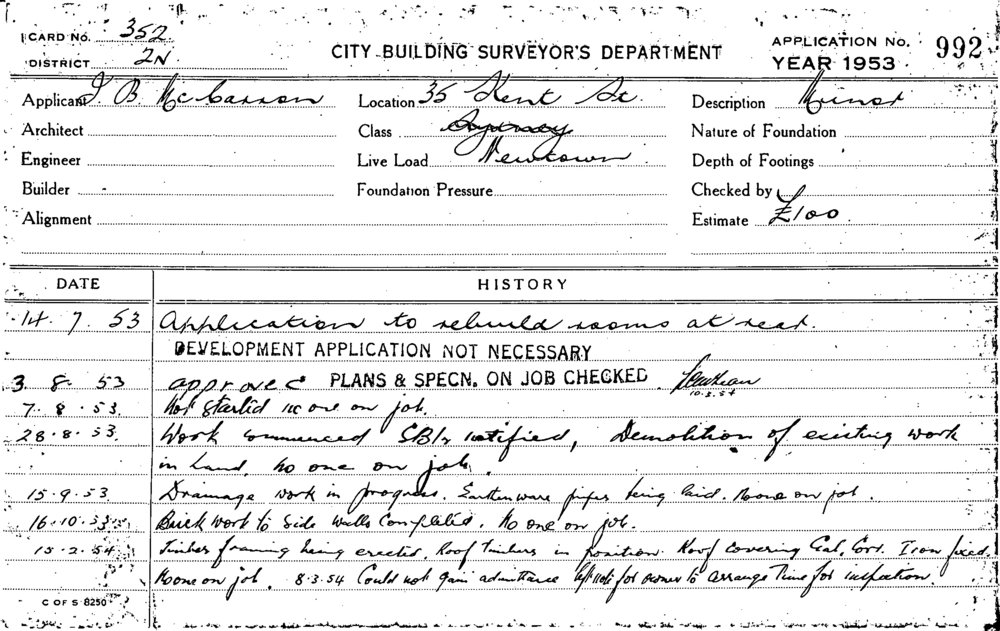 CARD No. 352
DISTRICT 2N
CITY BUILDING SURVEYOR'S DEPARTMENT
APPLICATION No. 992
YEAR 1953
Applicant J. B. McCarron Location 35 Kent St. Description Minor
Architect Class Sydney Nature of Foundation
Engineer Live Load Newtown Depth of Footings
Builder Foundation Pressure Checked by
Alignment Estimate £100
DATE HISTORY
14. 7. 53 Application to rebuild rooms at rear.
DEVELOPMENT APPLICATION NOT NECESSARY
3. 8. 53 approved PLANS & SPECN. ON JOB CHECKED
10.3.54
7. 8. 53. Not started no one on job.
28. 8. 53. Work commenced notified, Demolition of existing work
in hand, no one on job.
15. 9. 53 Drainage work in progress. Earthenware pipes being laid. No one on job.
16. 10. 53 Brick work to side walls completed. No one on job.
15. 2. 54 Timber framing being erected, Roof timbers in position. Roof covering Gal. Corr. Iron fixed.
No one on job. 8.3.54 Could not gain admittance left note for owner to arrange time for inspection.
C OF S 8250